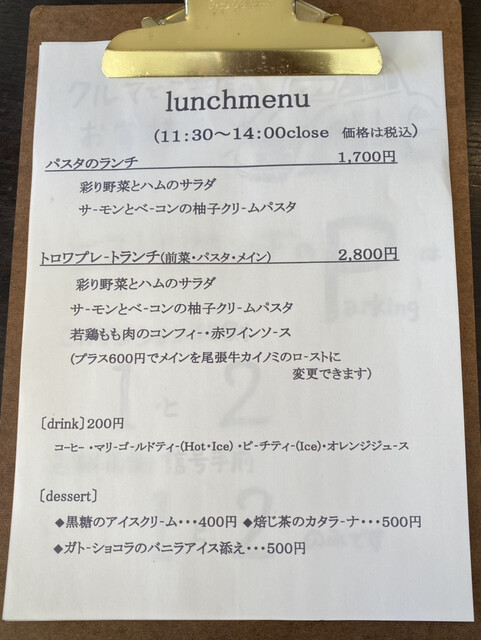 lunchmenu
(11:30～14:00close 価格は税込)
パスタのランチ 1,700円
彩り野菜とハムのサラダ
サーモンとベーコンの柚子クリームパスタ
トロワプレートランチ(前菜・パスタ・メイン) 2,800円
彩り野菜とハムのサラダ
サーモンとベーコンの柚子クリームパスタ
若鶏もも肉のコンフィー・赤ワインソース
(プラス600円でメインを尾張牛カイノミのローストに
変更できます)
[drink]200円
コーヒー・マリーゴールドティー(Hot・Ice)・ピーチティー(Ice)・オレンジジュース
[dessert]
◆黒糖のアイスクリーム・・・400円 ◆焙じ茶のカタラーナ・・・500円
◆ガトーショコラのバニラアイス添え・・・500円